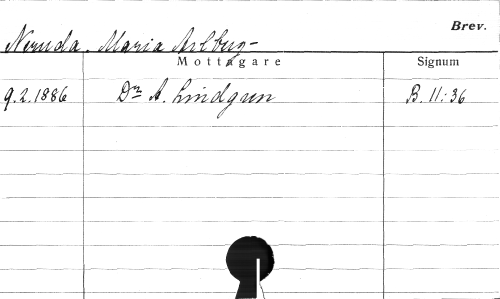 Brev.
Neruda, Maria Arlberg-
Mottagare Signum
9.2.1886 Dr A. Lindgren B. 11:36